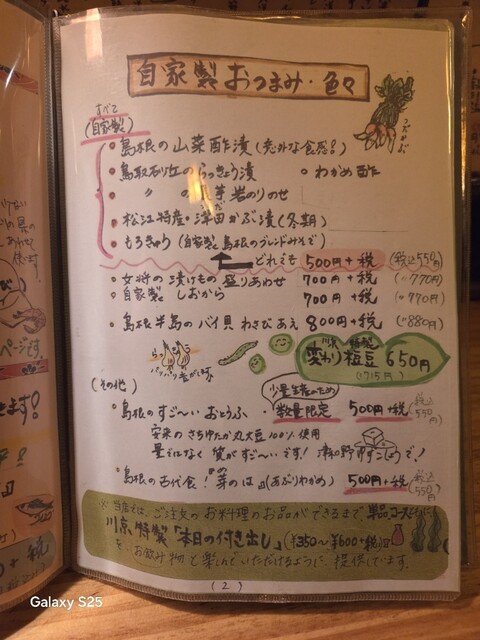 自家製 おつまみ・色々
すべて
(自家製)
つだかぶ
・島根の山菜酢漬(意外な食感!)
・鳥取砂丘のらっきょう漬 ・わかめ酢
・〃 の 芋 岩のりのせ
つだ
・松江特産・津田かぶ漬(冬期)
・もろきゅう(自家製島根のブレンドみそで)
どれも 500円+税 (税込550円)
・女将の漬けもの盛りあわせ 700円+税 (〃770円)
・自家製 しおから 700円+税 (〃770円)
・島根半島のバイ貝 わさびあえ 800円+税 (〃880円)
川京 特製
変わり枝豆 650円
(715円)
(その他)
少量生産のため
・島根のすご〜いおとうふ・数量限定 500円+税 (税込550円)
安来のさちゆたか丸大豆100%使用
量ではなく 質がすご〜いです! 津和野ゆずこしょうで!
・島根の古代食!"芽のは"(あぶりわかめ) 500円+税 (税込550円)
※当店では、ご注文のお料理のお品ができるまで、単品コースともに
川京特製「本日の付き出し」(¥350〜¥600+税)
を、お飲み物と楽しんでいただけるように、提供しています。
(2)
ページです。
Galaxy S25